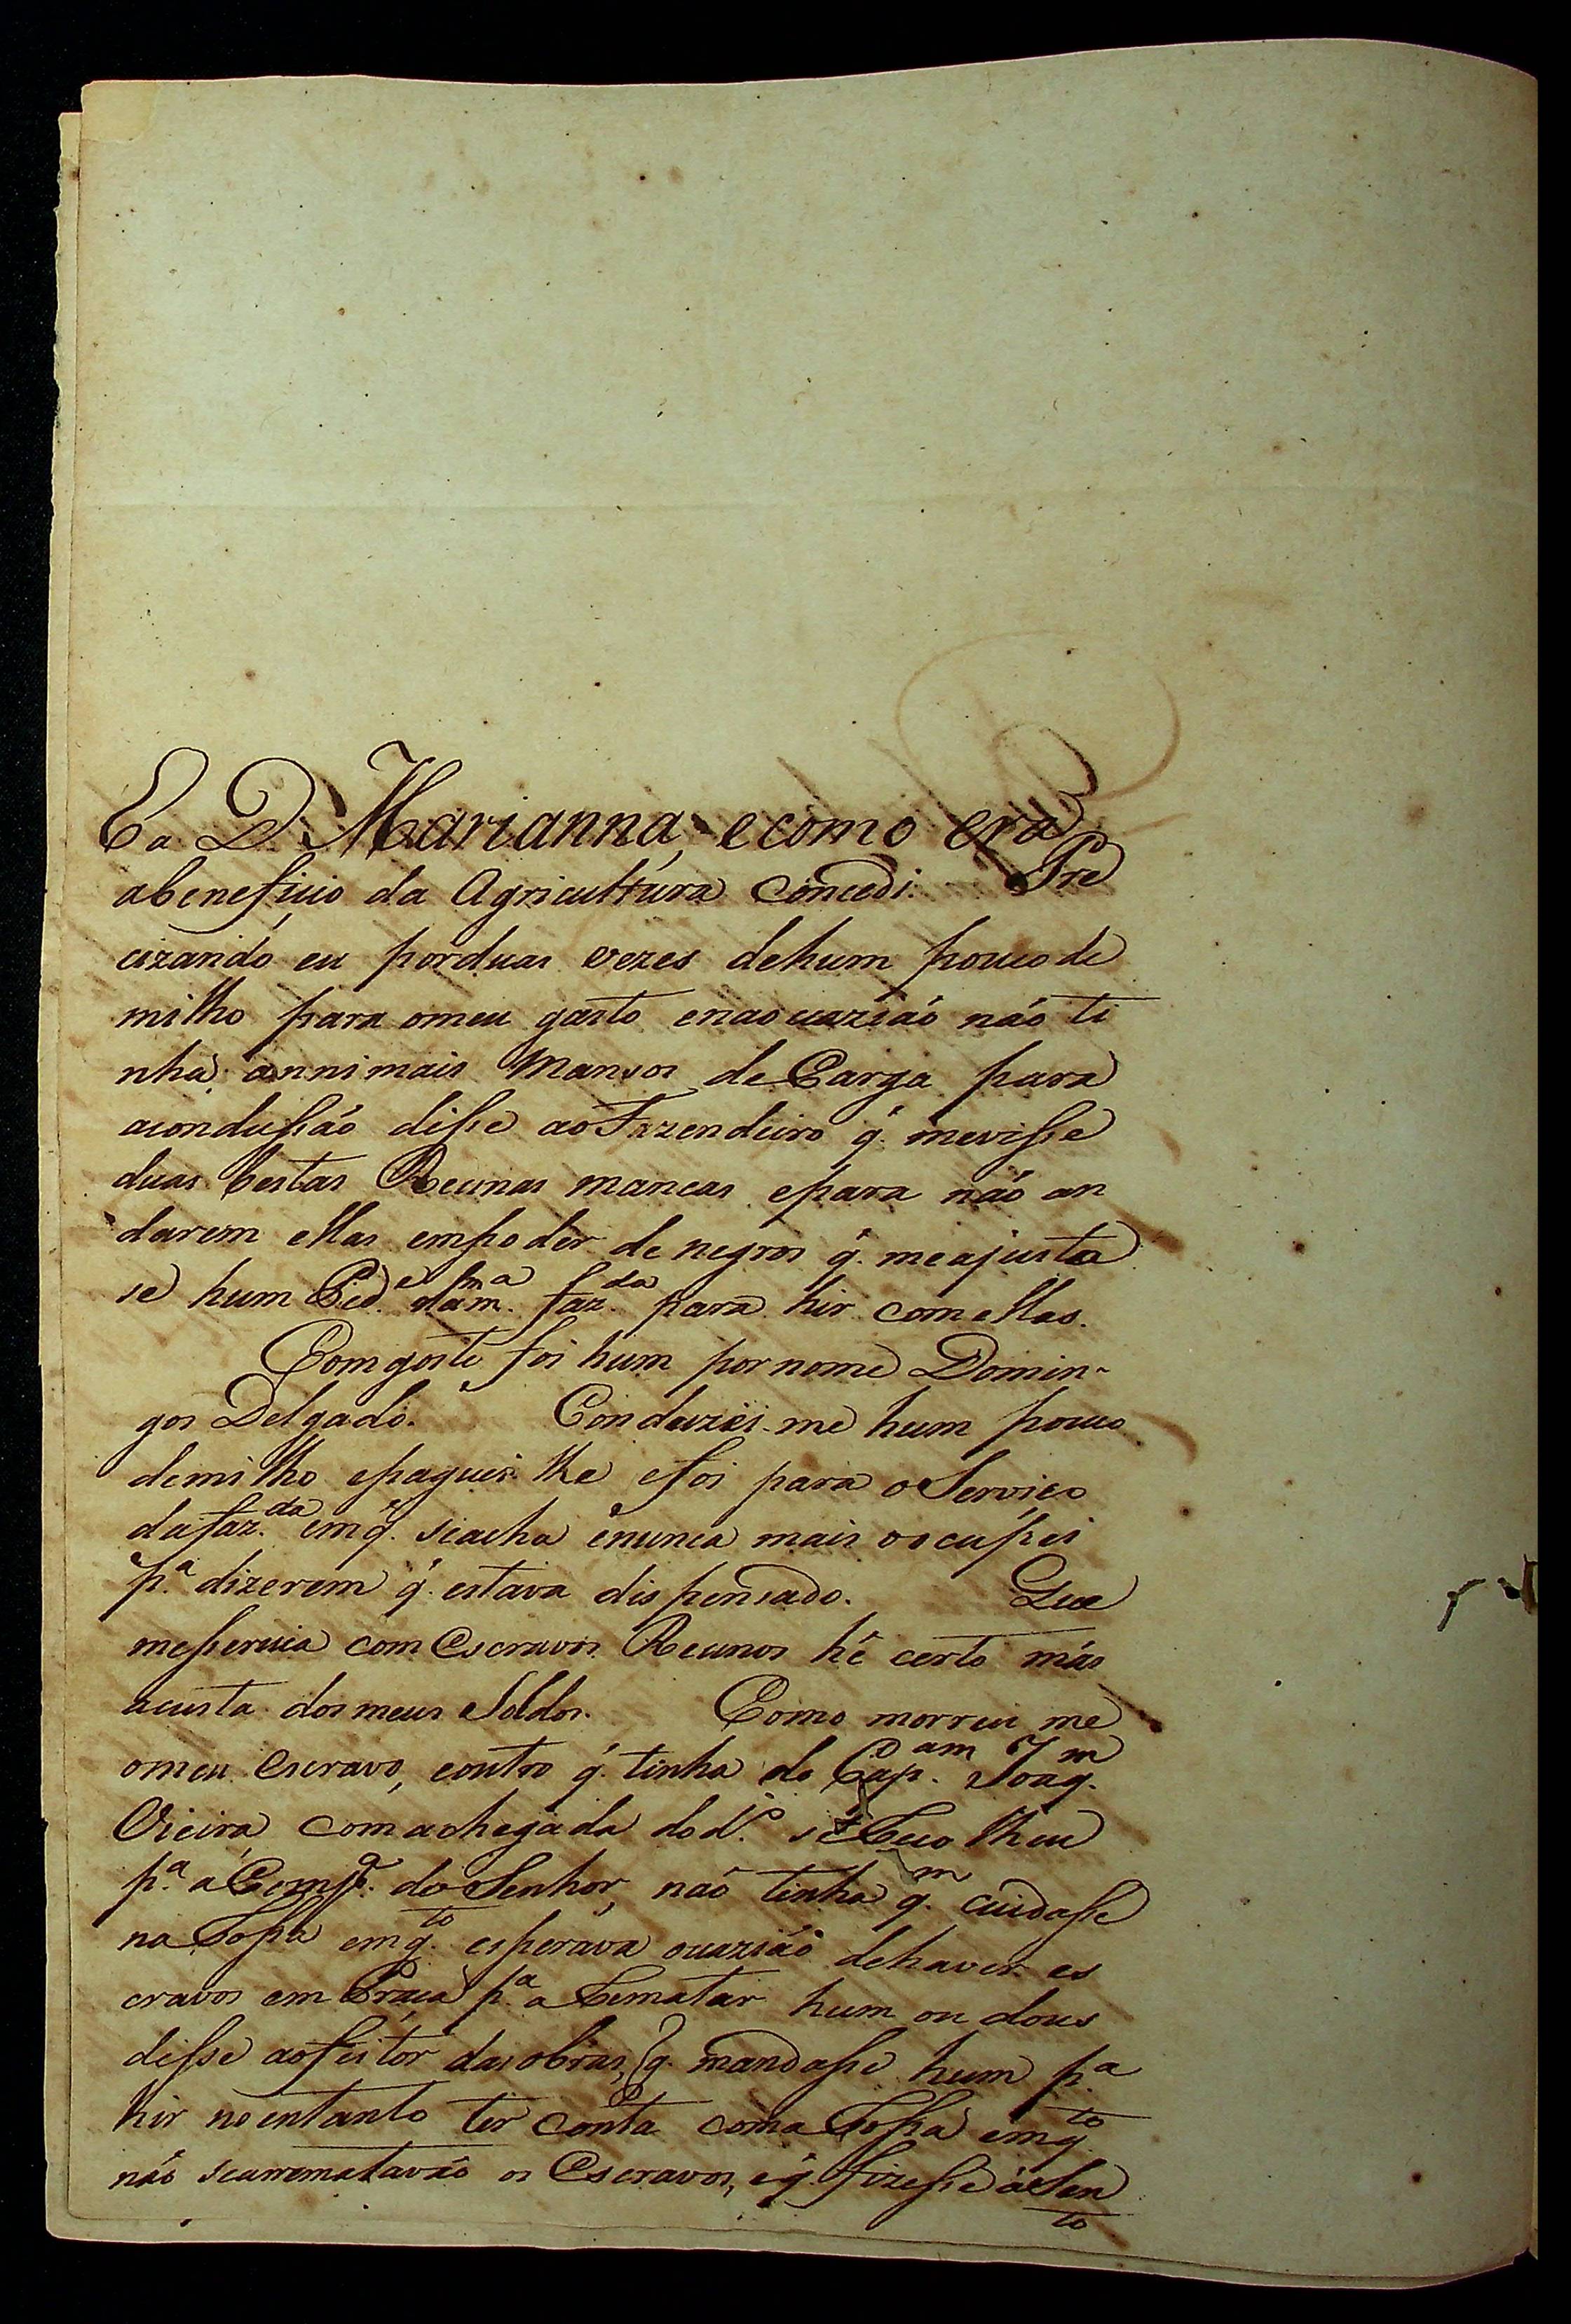 Ea D. Marianna, e como era
abeneficio da Agricultura concedi. Pre
cizando eu porduas vezes dehum poucode
milho para omeu gasto enaocazião não ti
nha annimais Mansos de Carga para
acondussão disse aoFazendeiro q. mevisse
duas bestas Reunas mancas epara não an
darem ellas empoder de negros q. meajusta
se hum Pid.e dam.ma faz.da para hir comellas.
Com goste foi hum por nome Domin-
gos Delgado. Conduzii-me hum pouco
demilho epaguei lhe efoi para oServiço
dafaz.da emq. seacha enunca mais oocupei
p.a dizerem q. estava dispensado. Que
messervia com Escravos Reunos hé certo más
acusta dosmeus Soldos. Como morreu me
omeu escravo, eoutro q. tinha do Cap.am Joaq.m
Vieira comachegada dod.o se Recolheu
p.a a Comp.a do Senhor, não tinha q.m cuidasse
na Rossa emq.to esperava ocazião dehaver es
cravos em Praça p.a aRematar hum ou dous
disse aofeitor dasobras, q. mandasse hum p.a
hir noentanto ter conta coma Rossa emq.to
não searrematavão os Escravos, eq. fizesse oSen
to